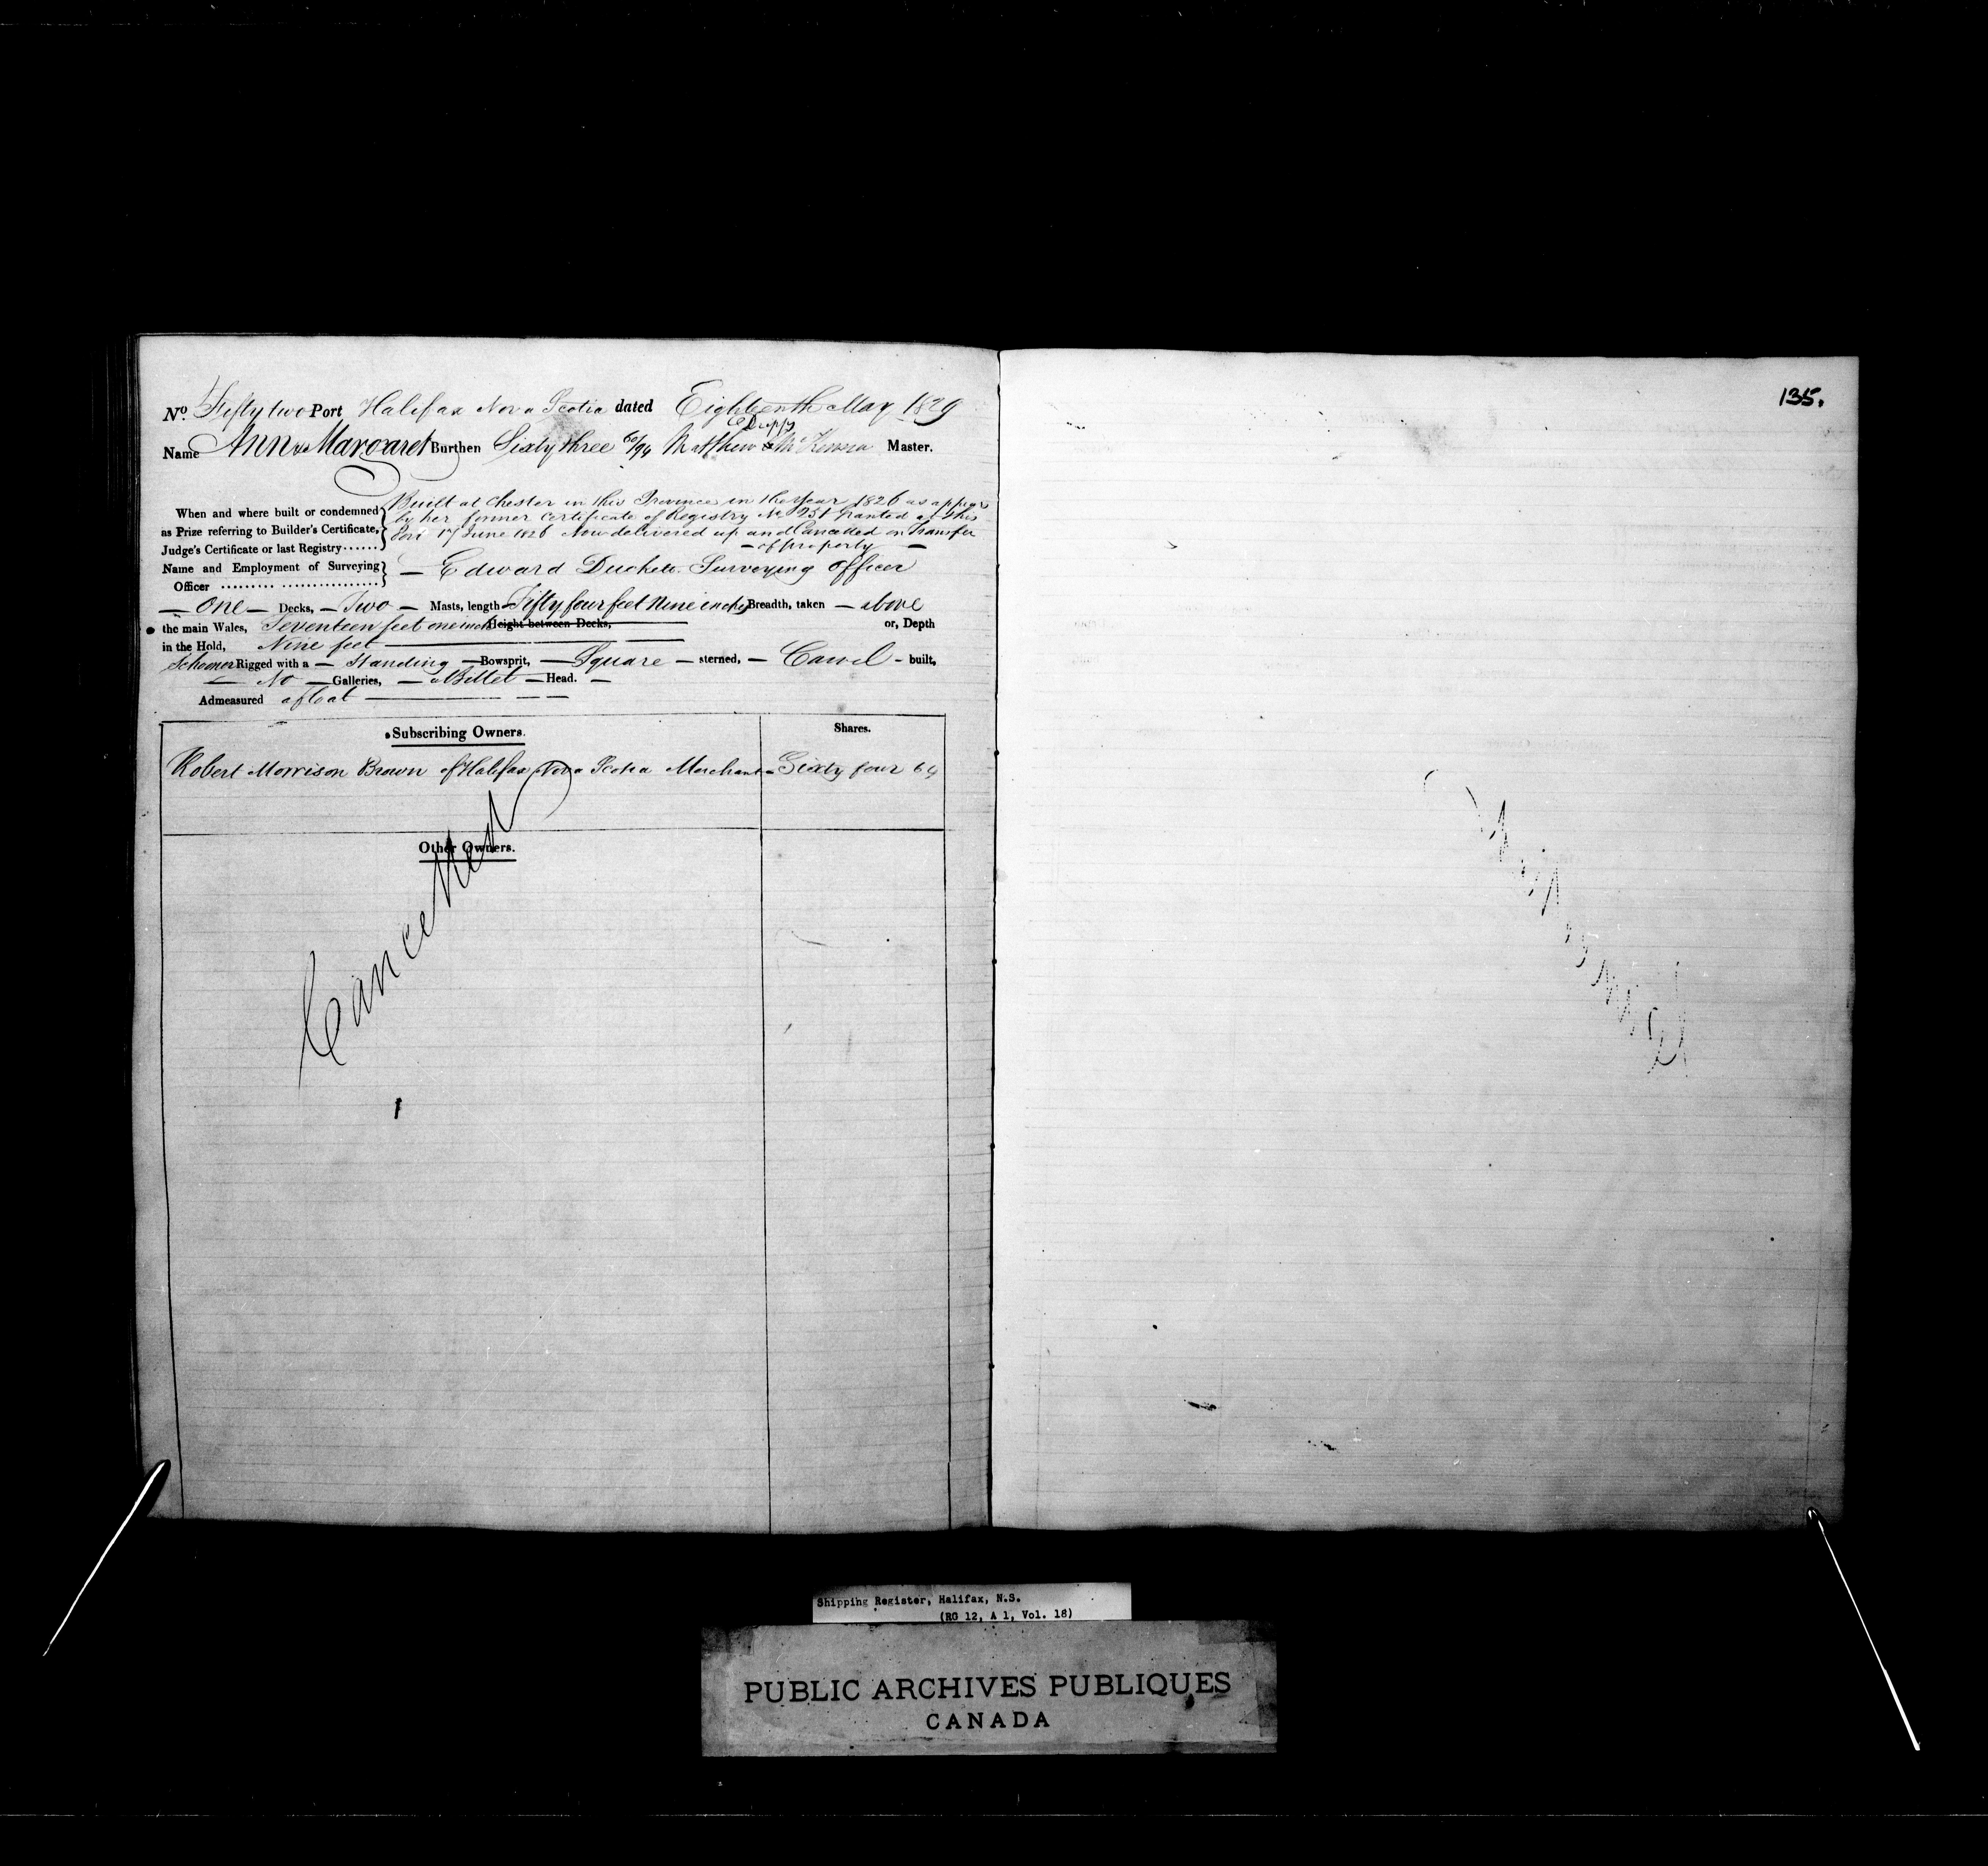 135.
No. Fifty two Port Halifax Nova Scotia dated Eighteenth May 1829
Name Ann & Margaret Burthen Sixty three 60/94 Matthew Master.
When and where built or condemned as Prize referring to Builder's Certificate, Judge's Certificate or last Registry......
Built at Chester in this Province in the Year 1826 as appears
by her former Certificate of Registry No 251 Granted at this
Port 17 June 1826 Now delivered up and Cancelled on Transfer
— of property —
Name and Employment of Surveying Officer — Edward Duckett Surveying Officer
— One — Decks, — Two — Masts, length Fifty four feet Nine inches Breadth, taken — above
the main Wales, Seventeen feet one inch Height between Decks, or, Depth
in the Hold, Nine feet
Schooner Rigged with a — Standing — Bowsprit, — Square — sterned, — Carvel - built,
— No — Galleries, — a Billet — Head. —
Admeasured afloat
Subscribing Owners. Shares.
Robert Morrison Brown of Halifax Nova Scotia Merchant - Sixty four 64
Other Owners.
Cancelled
Shipping Register, Halifax, N.S.
(RG 12, A 1, Vol. 18)
PUBLIC ARCHIVES PUBLIQUES
CANADA